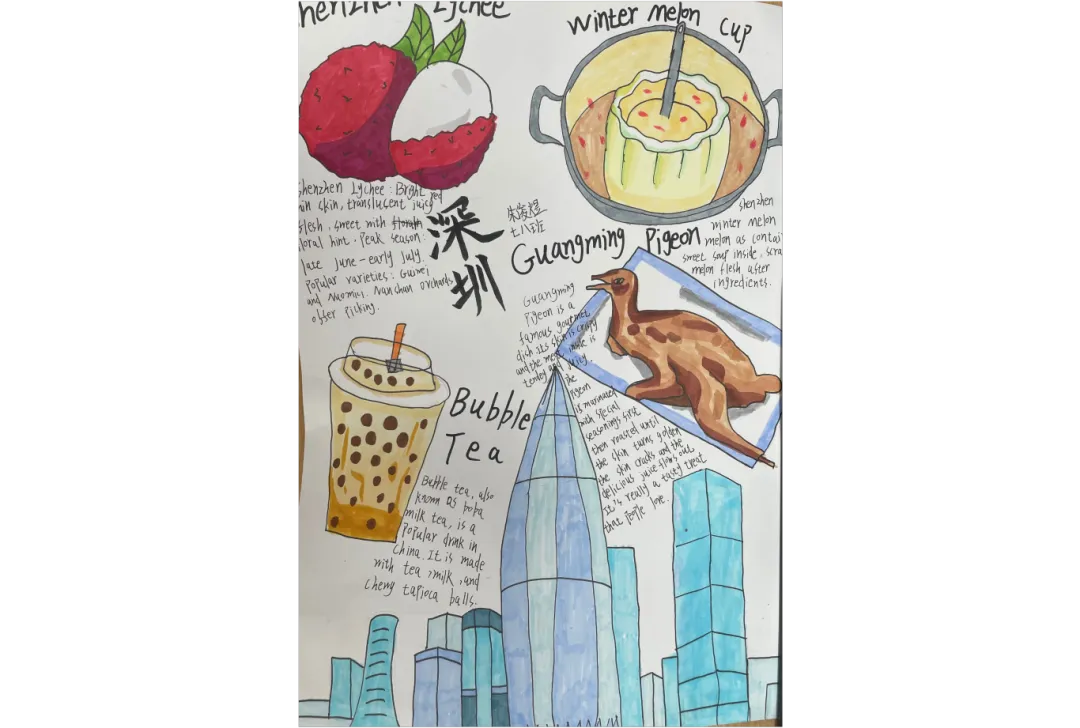 henzhen Lychee
Shenzhen Lychee: Bright red
in skin, translucent juicy
flesh, sweet with
loral hint. Peak season:
late June-early July.
Popular varieties: Guiwei
and Nuomici. Nanshan orchards
offer picking.
深圳
七八班
Winter melon Cup
shenzhen
winter melon
melon as contai
sweet soup inside, scra
melon flesh after
ingredients.
Guangming Pigeon
Guangming
Pigeon is a
famous gourmet
dish. Its skin is crispy
and the meat inside is
tender and juicy.
the
pigeon
is marinated
with special
seasonings first
then roasted until
the skin turns golden
the skin cracks and the
delicious juice flows out
It is really a tasty treat
that people love.
Bubble
Tea
Bubble tea, also
known as boba
milk tea, is a
popular drink in
China. It is made
with tea, milk, and
cheng tapioca balls.